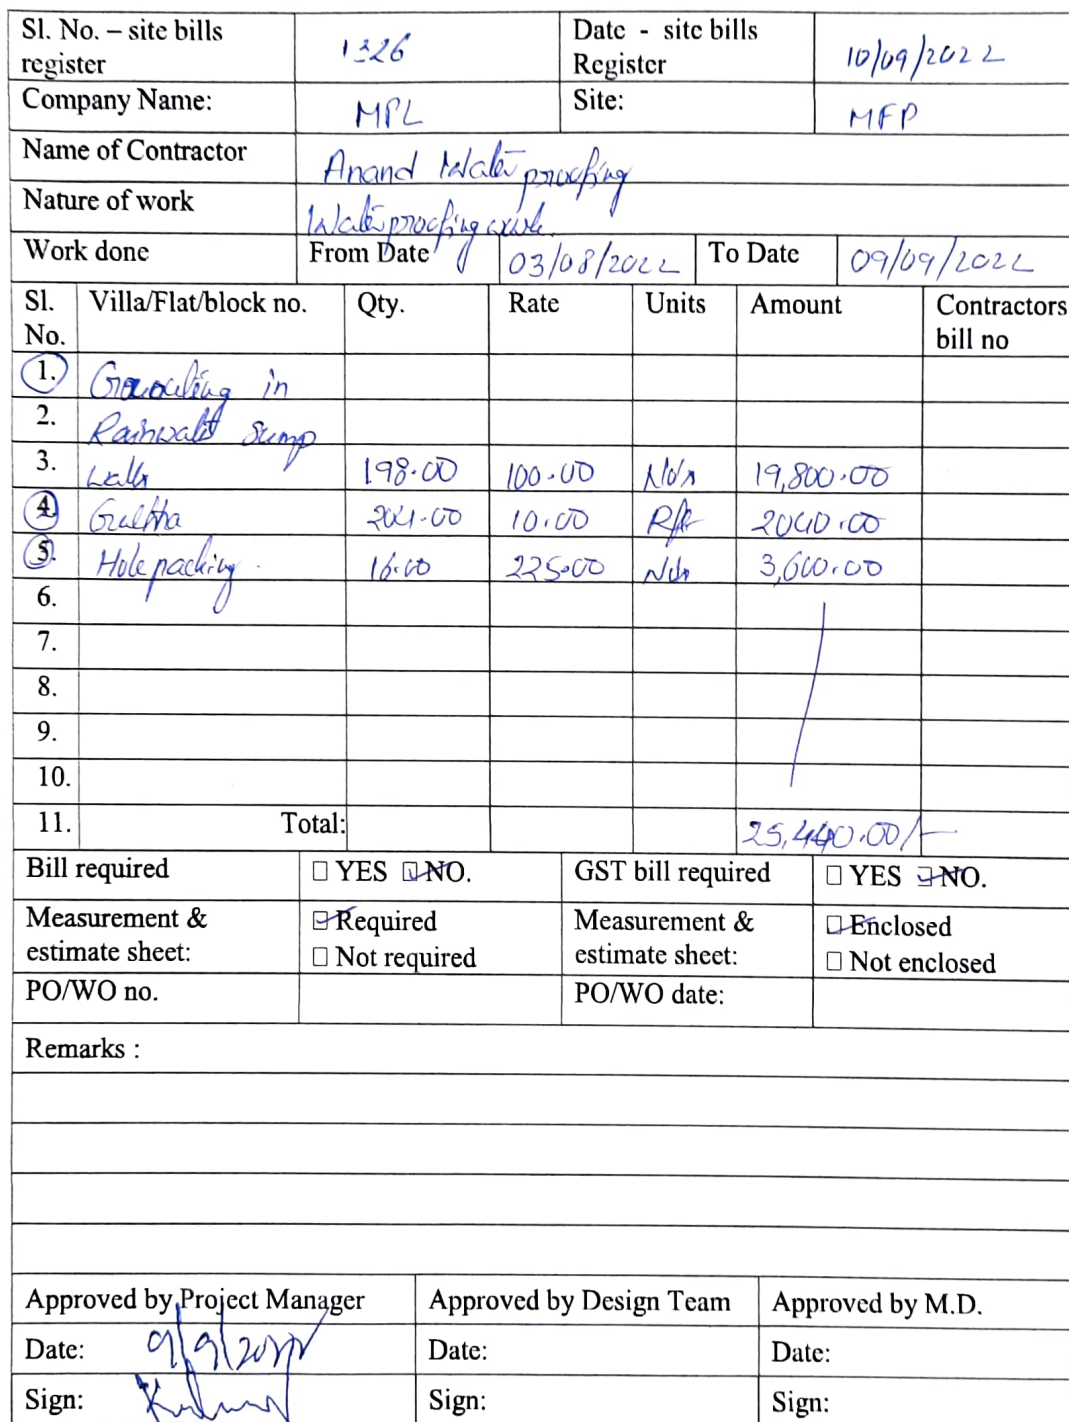 Sl. No. – site bills register 1326 Date - site bills Register 10/09/2022
Company Name: MPL Site: MFP
Name of Contractor Anand Water proofing
Nature of work Water proofing work.
Work done From Date 03/08/2022 To Date 09/09/2022
Sl. No. Villa/Flat/block no. Qty. Rate Units Amount Contractors bill no
1. Grouting in
2. Rainwater Sump
3. walls 198.00 100.00 No's 19,800.00
4. 204.00 10.00 Rft 2040.00
5. Hole packing. 16.00 225.00 No's 3,600.00
6.
7.
8.
9.
10.
11. Total: 25,440.00/-
Bill required YES NO. GST bill required YES NO.
Measurement & estimate sheet: Required Not required Measurement & estimate sheet: Enclosed Not enclosed
PO/WO no. PO/WO date:
Remarks :
Approved by Project Manager Approved by Design Team Approved by M.D.
Date: 9/9/2022 Date: Date:
Sign: Sign: Sign: